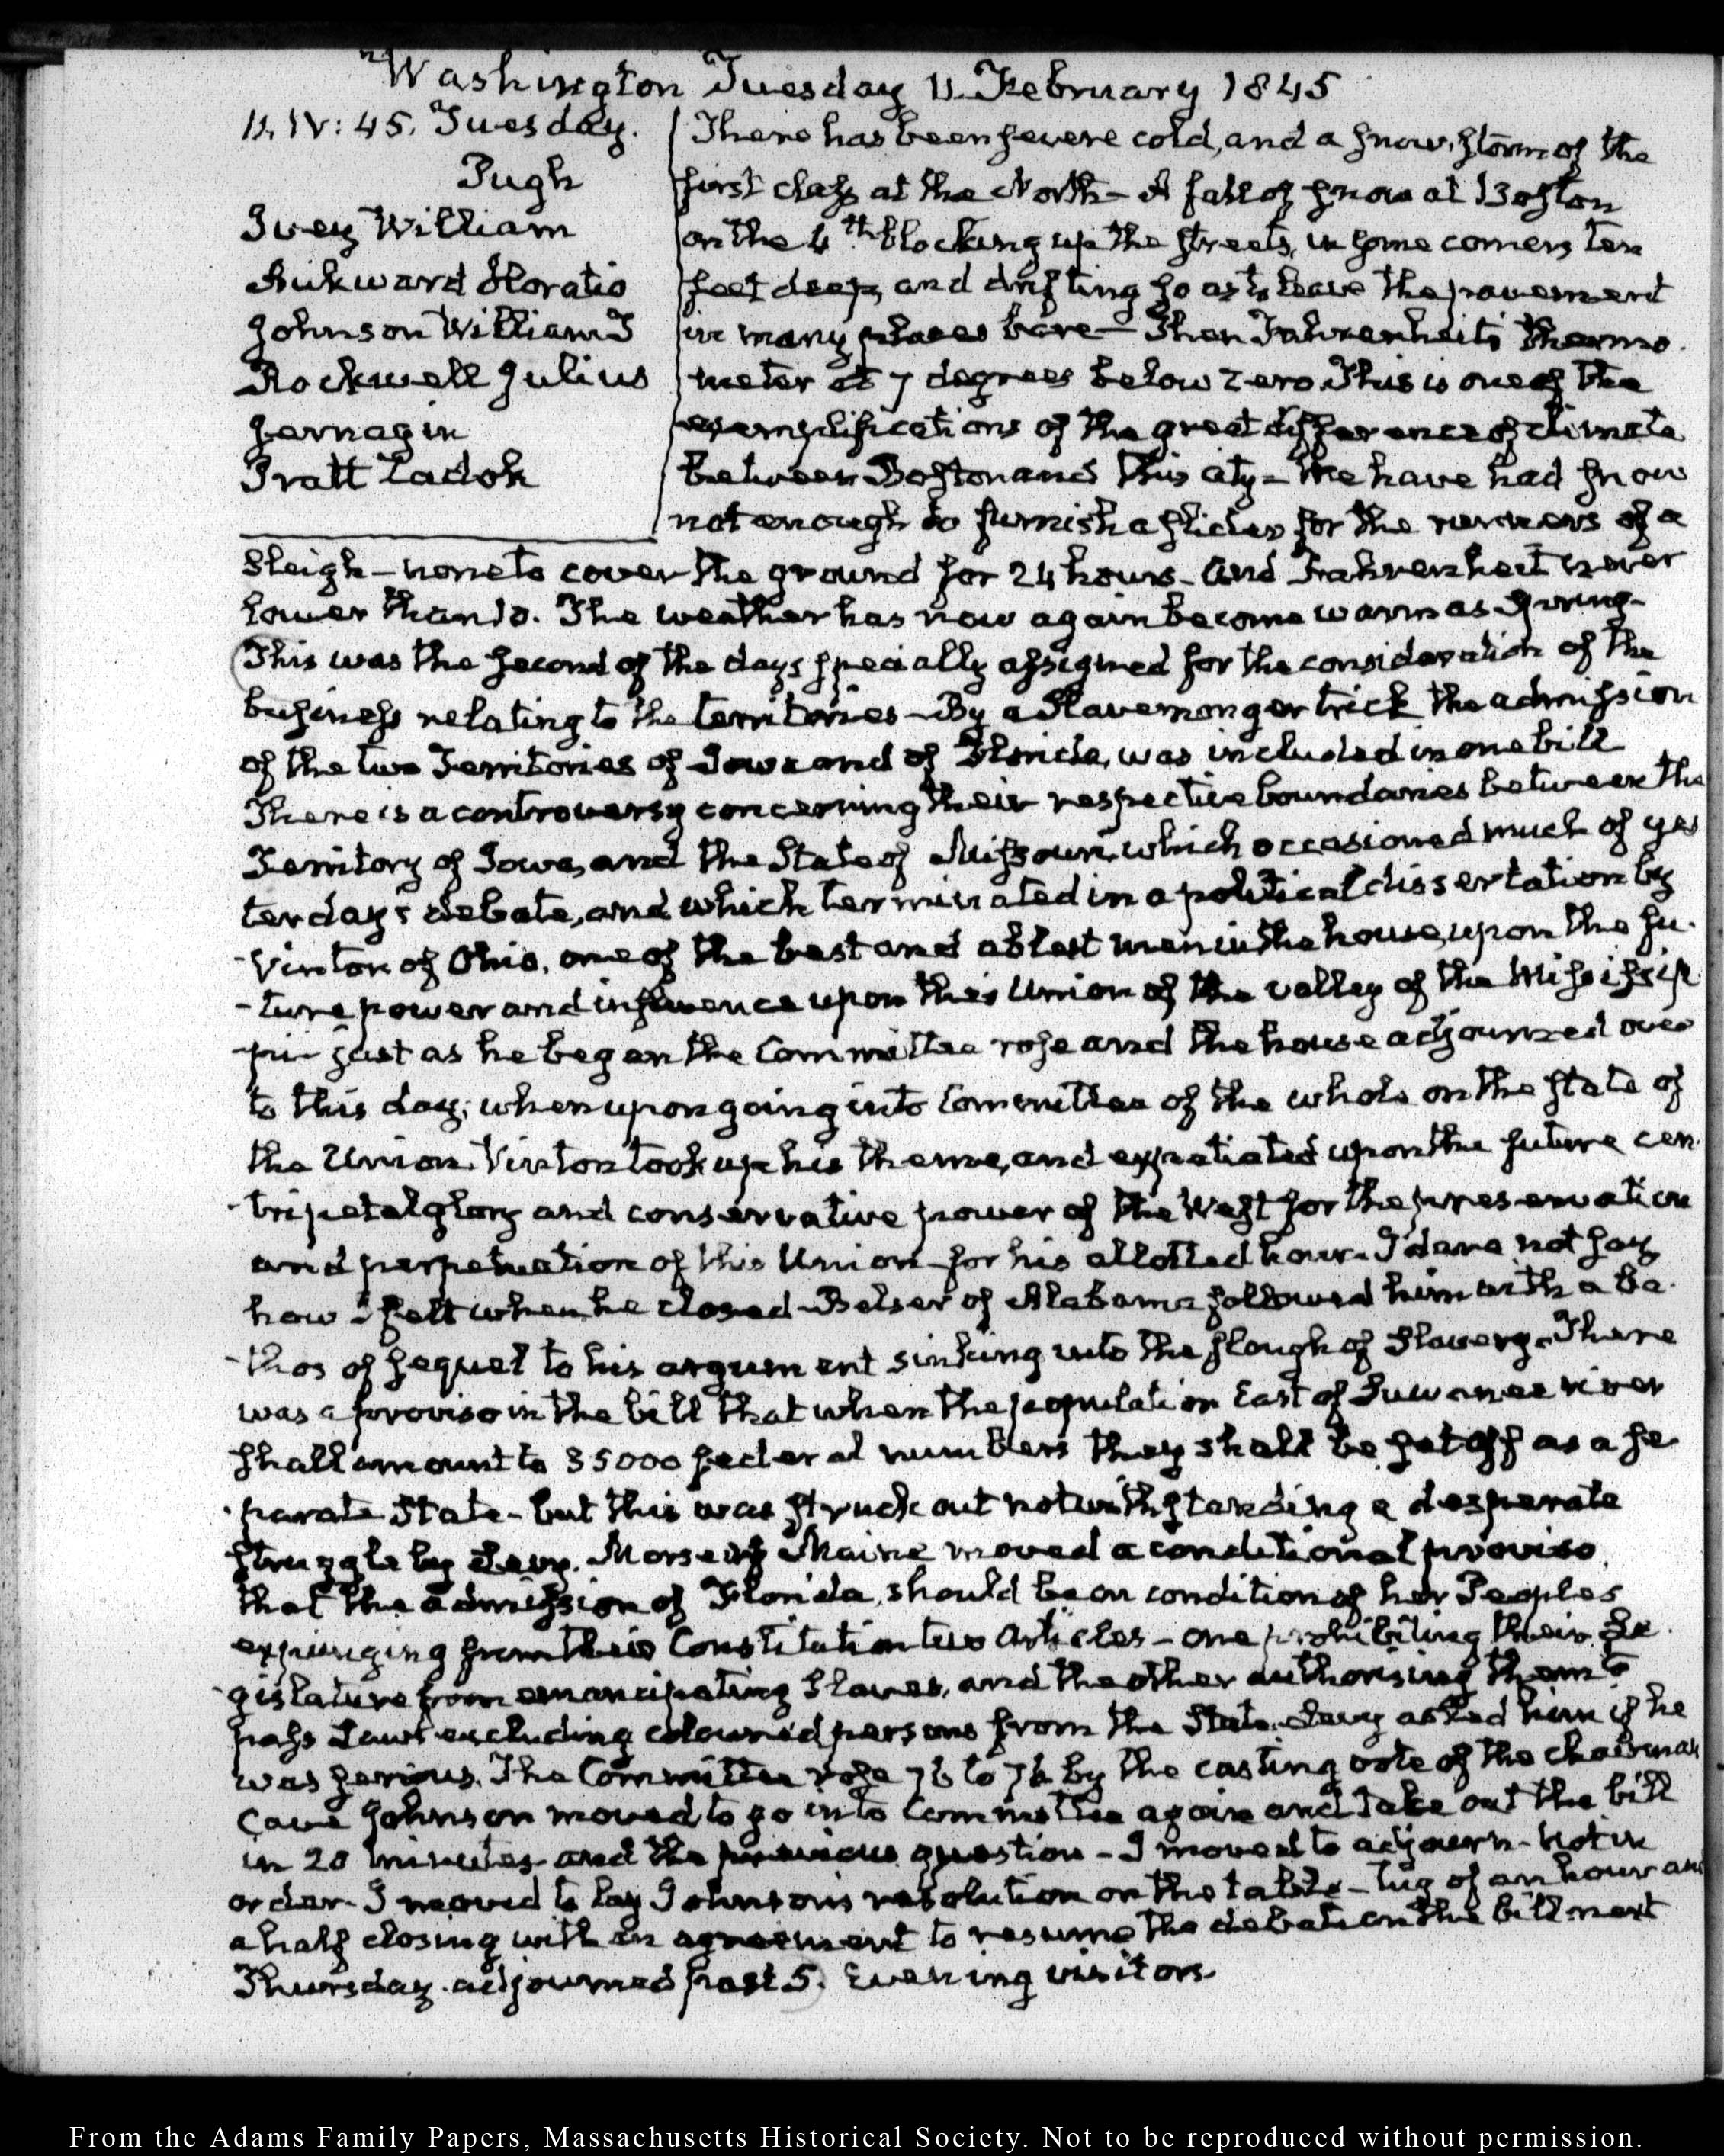 Washington Tuesday 11. February 1845
11. IV: 45. Tuesday.
Pugh
Ivey William
Horatio
Johnson William J
Rockwell Julius
Jarnagin
Pratt Zadok
There has been severe cold, and a snow storm of the
first class at the North — A fall of snow at Boston
on the 4th blocking up the streets, in some corners ten
feet deep, and drifting so as to leave the pavement
in many places bare — Then Fahrenheit's thermo-
meter at 7 degrees below zero. This is one of the
exemplifications of the great difference of climate
between Boston and this city — We have had snow
not enough to furnish a slider for the runners of a
Sleigh — none to cover the ground for 24 hours — and Fahrenheit never
lower than 10. The weather has now again become warm as Spring —
This was the second of the days specially assigned for the consideration of the
business relating to the territories — By a Slavemonger trick the admission
of the two Territories of Iowa and of Florida, was included in one bill
There is a controversy concerning their respective boundaries between the
Territory of Iowa, and the State of Missouri, which occasioned much of yes
terday's debate, and which terminated in a political dissertation by
Vinton of Ohio, one of the best and ablest men in the house, upon the fu-
-ture power and influence upon this Union of the valley of the Mississip
-pi — just as he began the Committee rose and the house adjourned over
to this day; when upon going into Committee of the whole on the state of
the Union. Vinton took up his theme, and expatiated upon the future cen-
-tripetal glory and conservative power of the West for the preservation
and perpetuation of this Union — for his allotted hour — I dare not say
how I felt when he closed — Belser of Alabama followed him with a ba-
-thos of sequel to his argument sinking into the slough of Slavery — There
was a proviso in the bill that when the population East of Suwanee river
shall amount to 35000 federal numbers they shall be set off as a se-
-parate State — but this was struck out notwithstanding a desperate
struggle by Levy. Morse of Maine moved a conditional proviso,
that the admission of Florida, should be on condition of her Peoples
expunging from their Constitution two Articles — one prohibiting their Le-
-gislature from emancipating Slaves, and the other authorising them to
pass Laws excluding coloured persons from the State. Levy asked him if he
was serious. The Committee rose 76 to 76 by the casting vote of the chairman
Cave Johnson moved to go into Committee again and take out the bill
in 20 minutes and the previous question — I moved to adjourn — not in
order — I moved to lay Johnson's resolution on the table — tug of an hour and
a half closing with an agreement to resume the debate on the bill next
Thursday. adjourned past 5. Evening visitors.
From the Adams Family Papers, Massachusetts Historical Society. Not to be reproduced without permission.